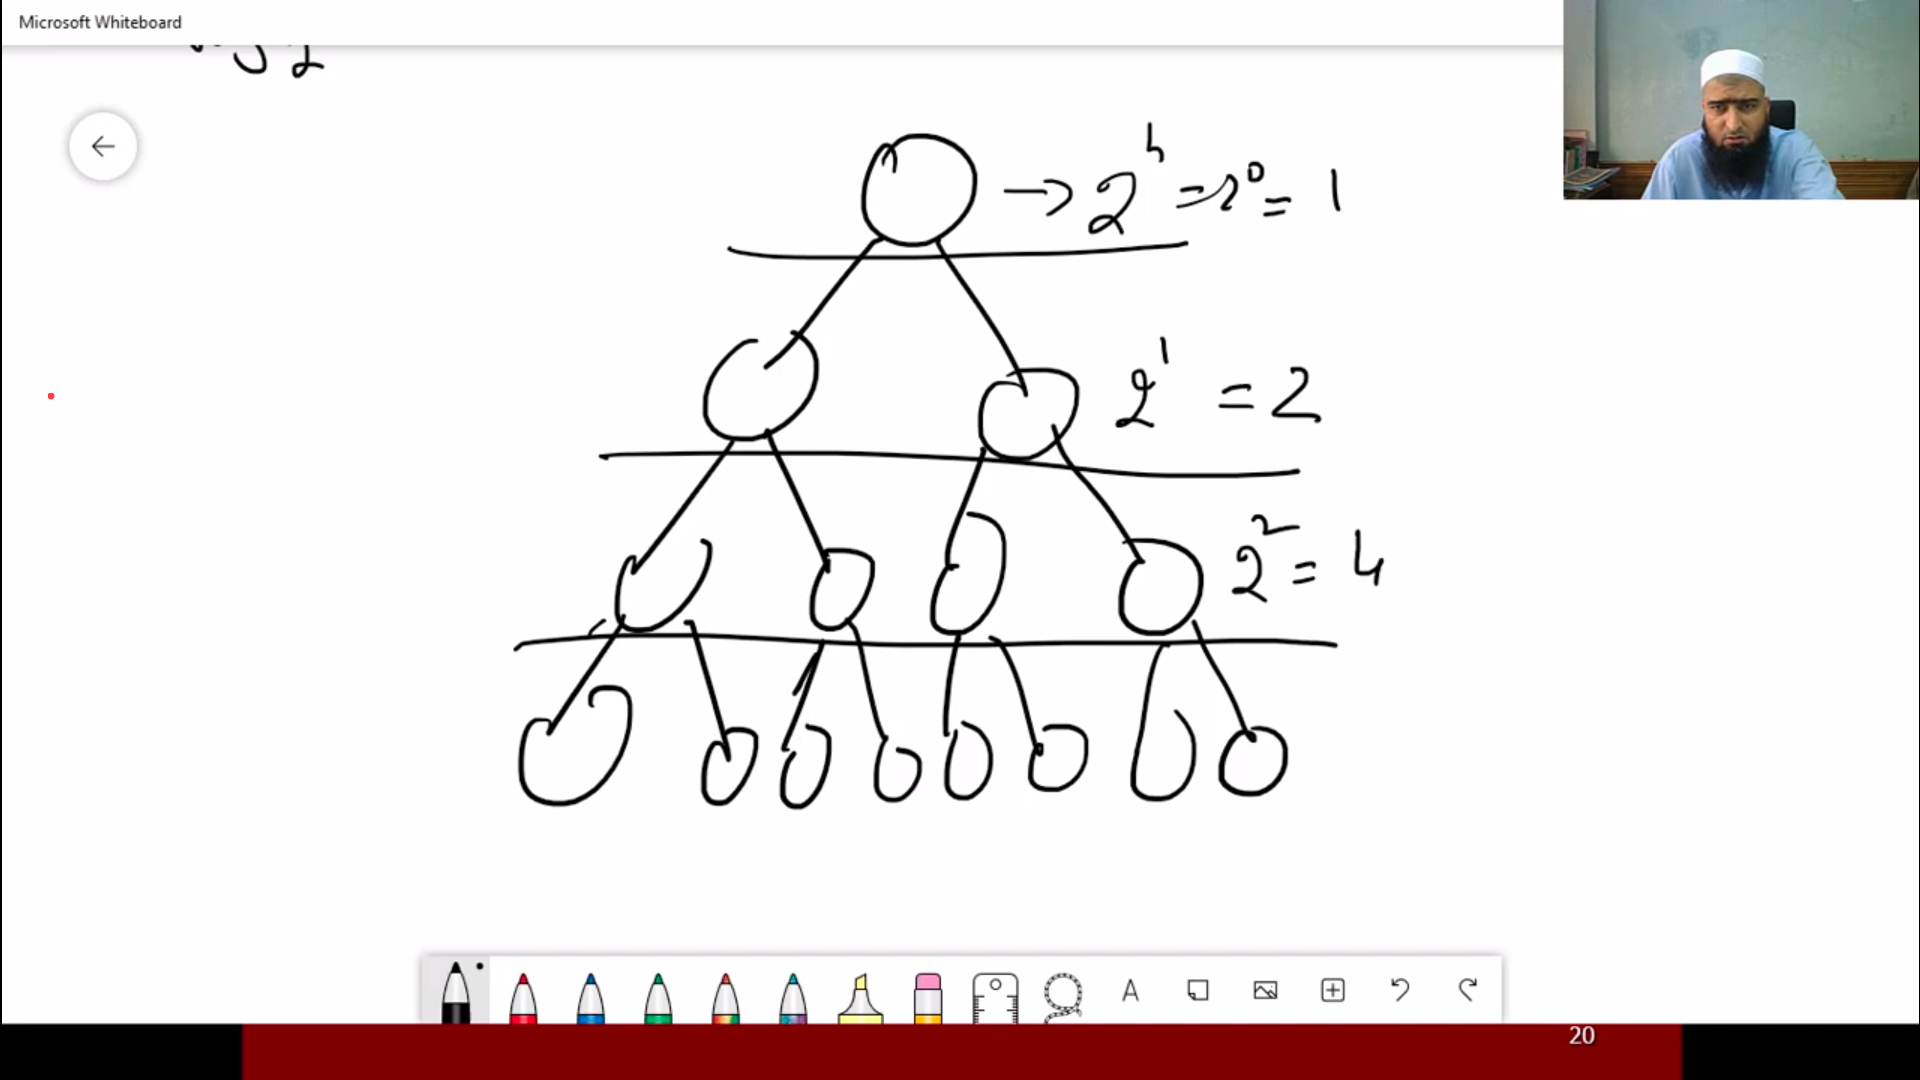 Microsoft Whiteboard
→ 2^h = 2^0 = 1
2^1 = 2
2^2 = 4
A
20